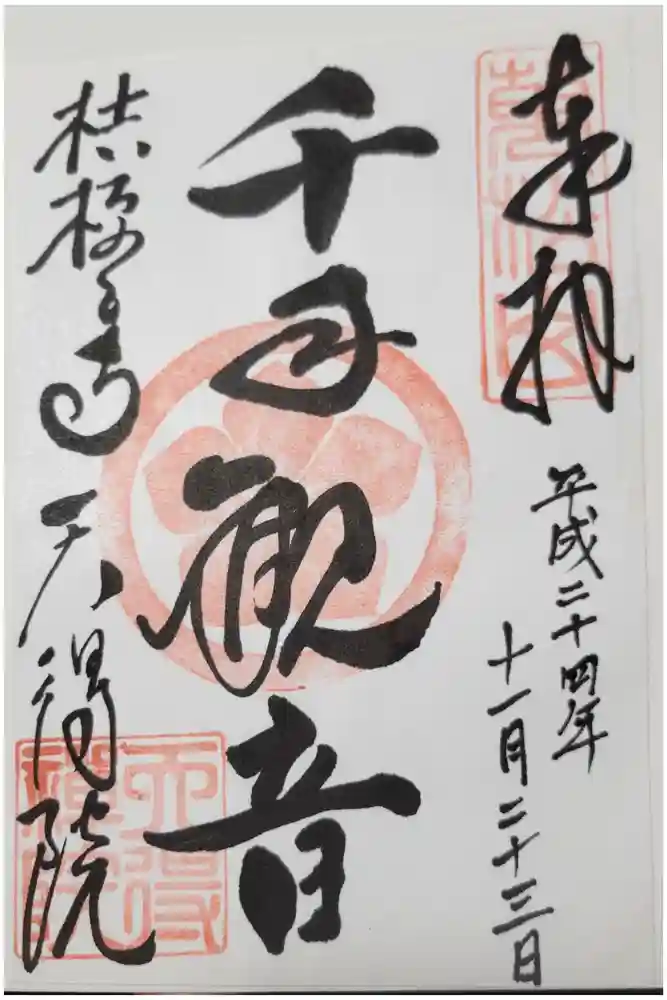 奉拝
平成二十四年
十一月二十三日
千手観音
桔梗の寺 天得院
天得
禅院